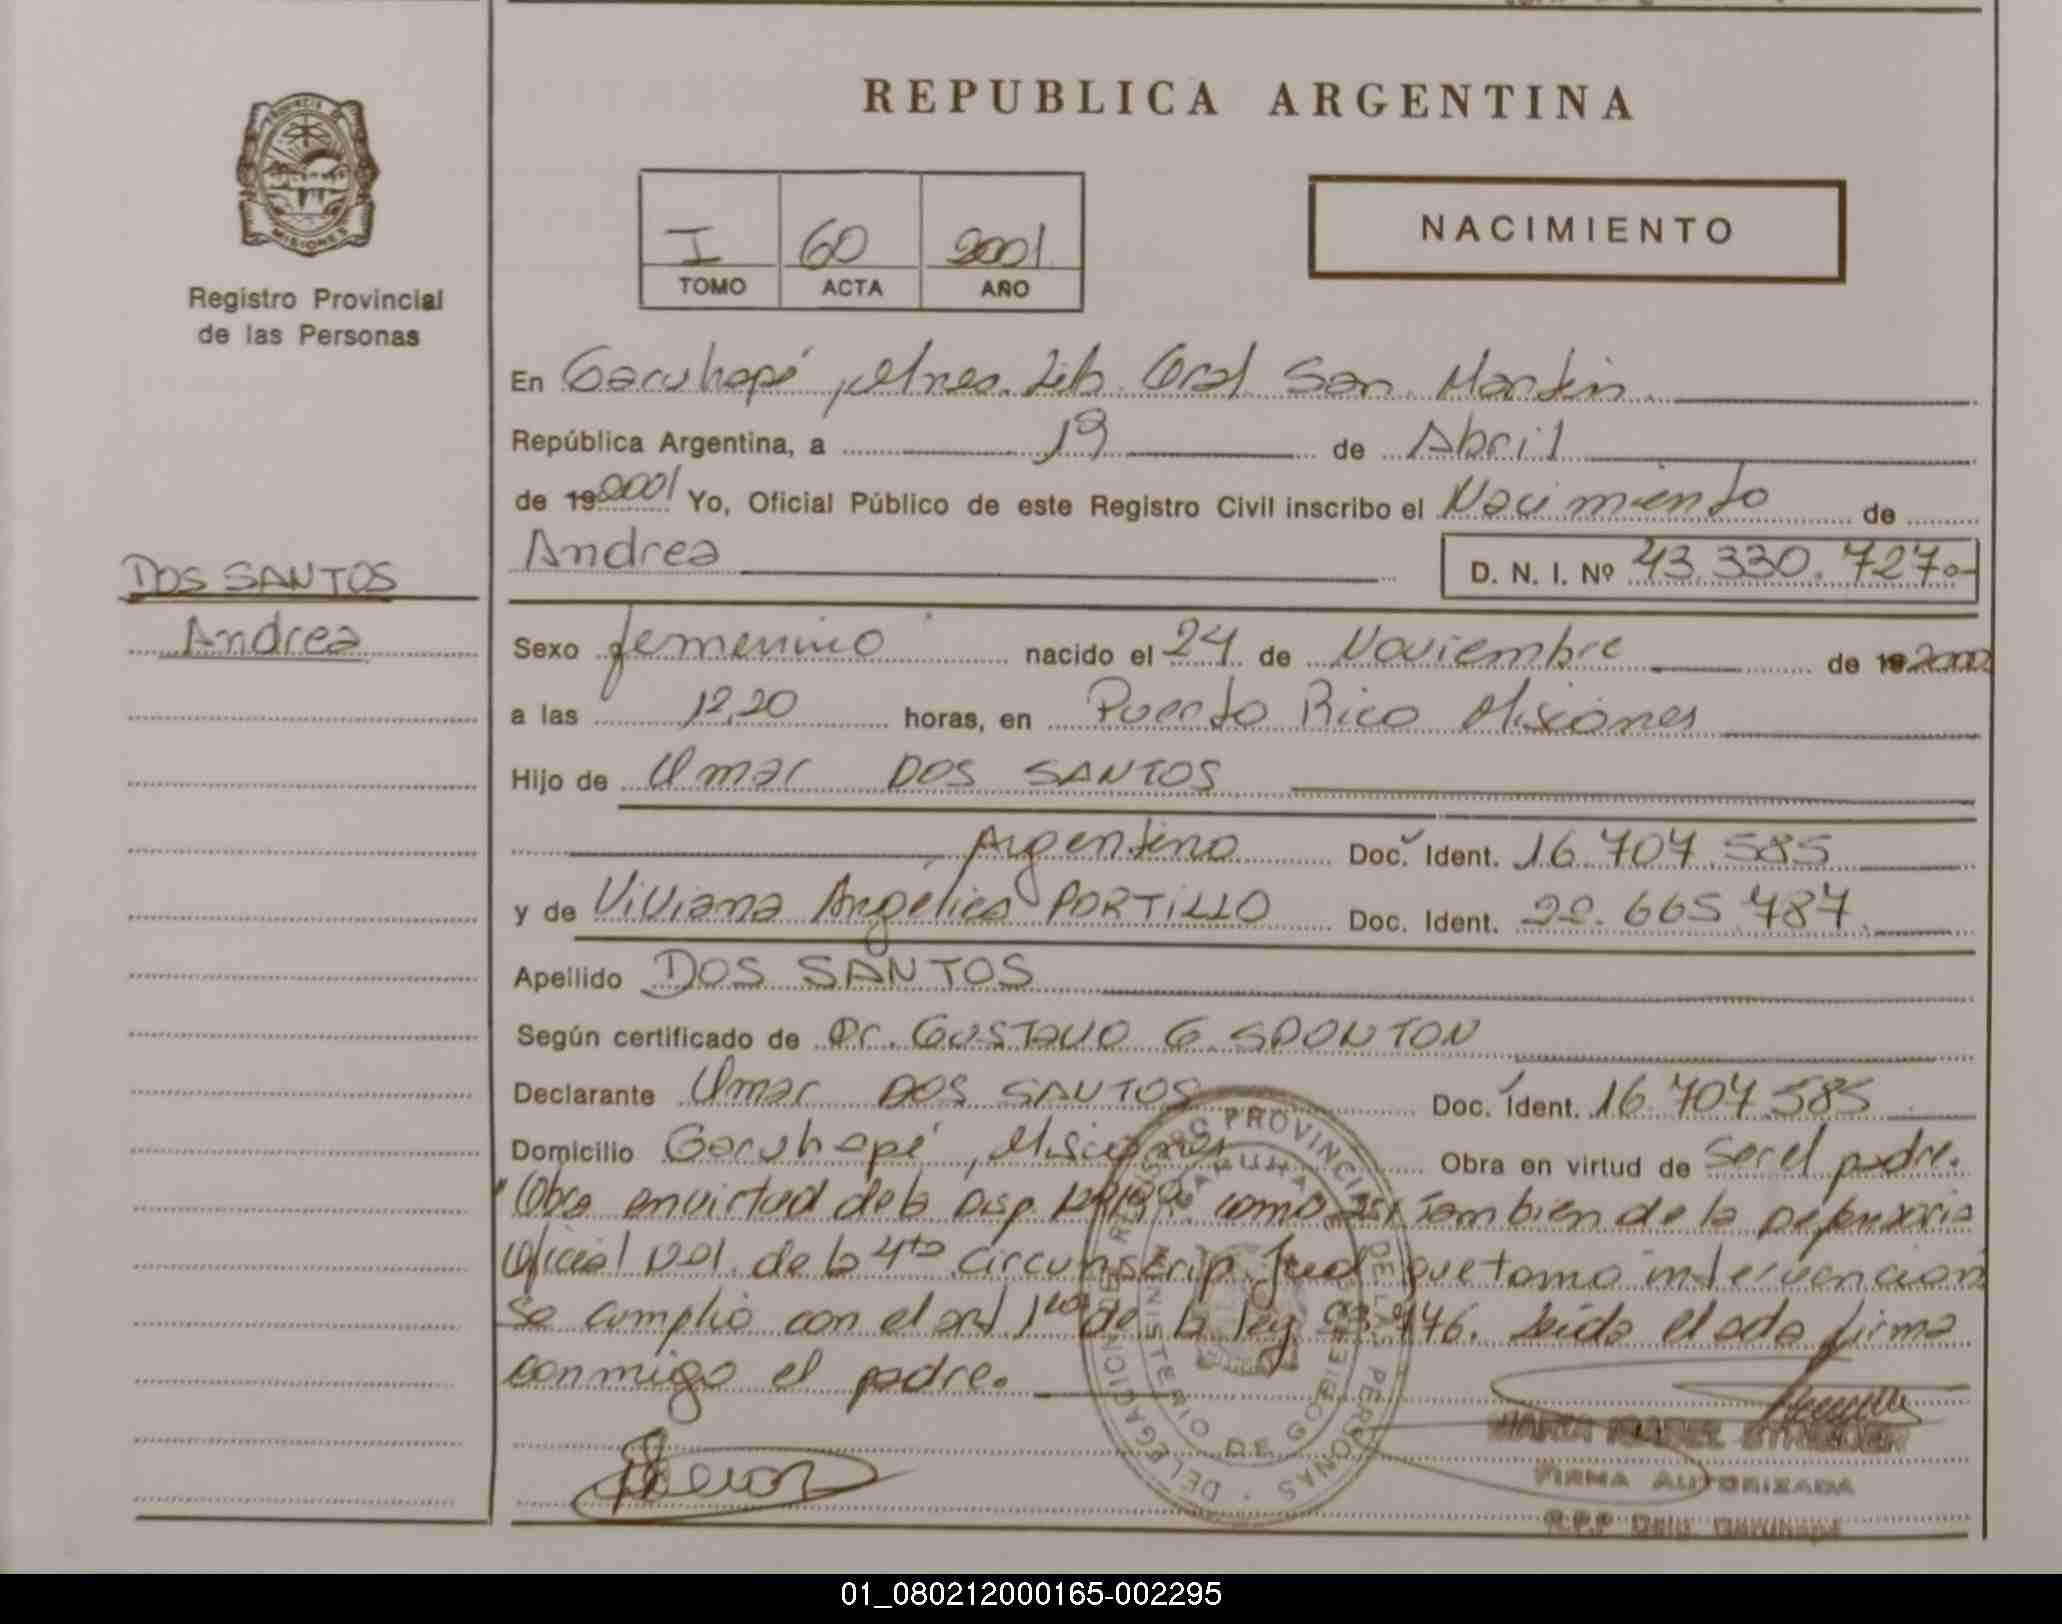 REPUBLICA ARGENTINA
PROVINCIA
MISIONES
Registro Provincial
de las Personas
I 60 2001
TOMO ACTA AÑO
NACIMIENTO
En Garuhapé, Mnes. Lib. Gral San Martín
República Argentina, a 19 de Abril
de 19 2001 Yo, Oficial Público de este Registro Civil inscribo el Nacimiento de
Andrea D. N. I. Nº 43.330.727.-
DOS SANTOS
Andrea
Sexo femenino nacido el 24 de Noviembre de 19 2000
a las 12,20 horas, en Puerto Rico Misiones
Hijo de Omar DOS SANTOS
Argentino Doc. Ident. 16.707.585
y de Viviana Angélica PORTILLO Doc. Ident. 22.665.787.
Apellido DOS SANTOS
Según certificado de Dr. GUSTAVO G. SPONTON
Declarante Omar DOS SANTOS Doc. Ident. 16.707.585
Domicilio Garuhapé, Misiones Obra en virtud de Ser el padre.
Obra en virtud de la Disp. como asi tambien de la Defensoria
Oficial Nº1. de la 4ta Circunscrip. Jud que tomo intervencion
Se cumplio con el art 1ro de la ley 23.946. Leida el acta firma
conmigo el padre.
DELEGACION REGISTRO PROVINCIAL DE LAS PERSONAS
GARUHAPE
MINISTERIO DE GOBIERNO
MARIA ISABEL
FIRMA AUTORIZADA
R.P.P Deleg. Garuhapé
01_080212000165-002295